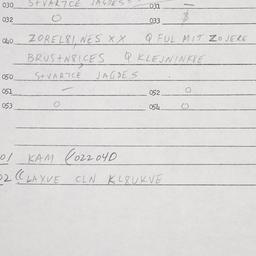 030 S+VARTCE JAGDES 031 —
032 O 033
040 ZORELSI, NES XX Q FUL MIT ZOJERE
BRUSTNSICES Q KLEJNINFIE
050 S+VARTCE JAGDES
051 — 052 O
053 O 054 O
01 KAM (02204D
02 ((LAXVE CLN KLSUKVE